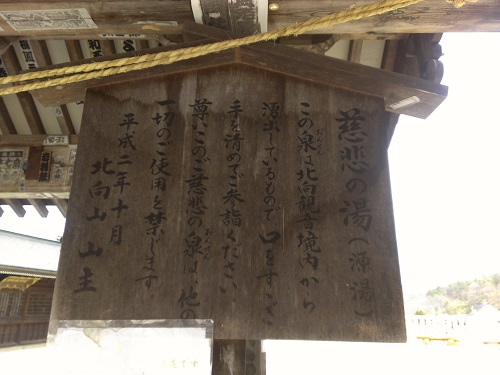 慈悲の湯(源湯)
この泉は北向観音境内から
湧出しているもので口をすゝぎ
手を清めてご参詣ください
尊いこのご慈悲の泉は、他の
一切のご使用を禁じます
平成二年十月
北向山 山主